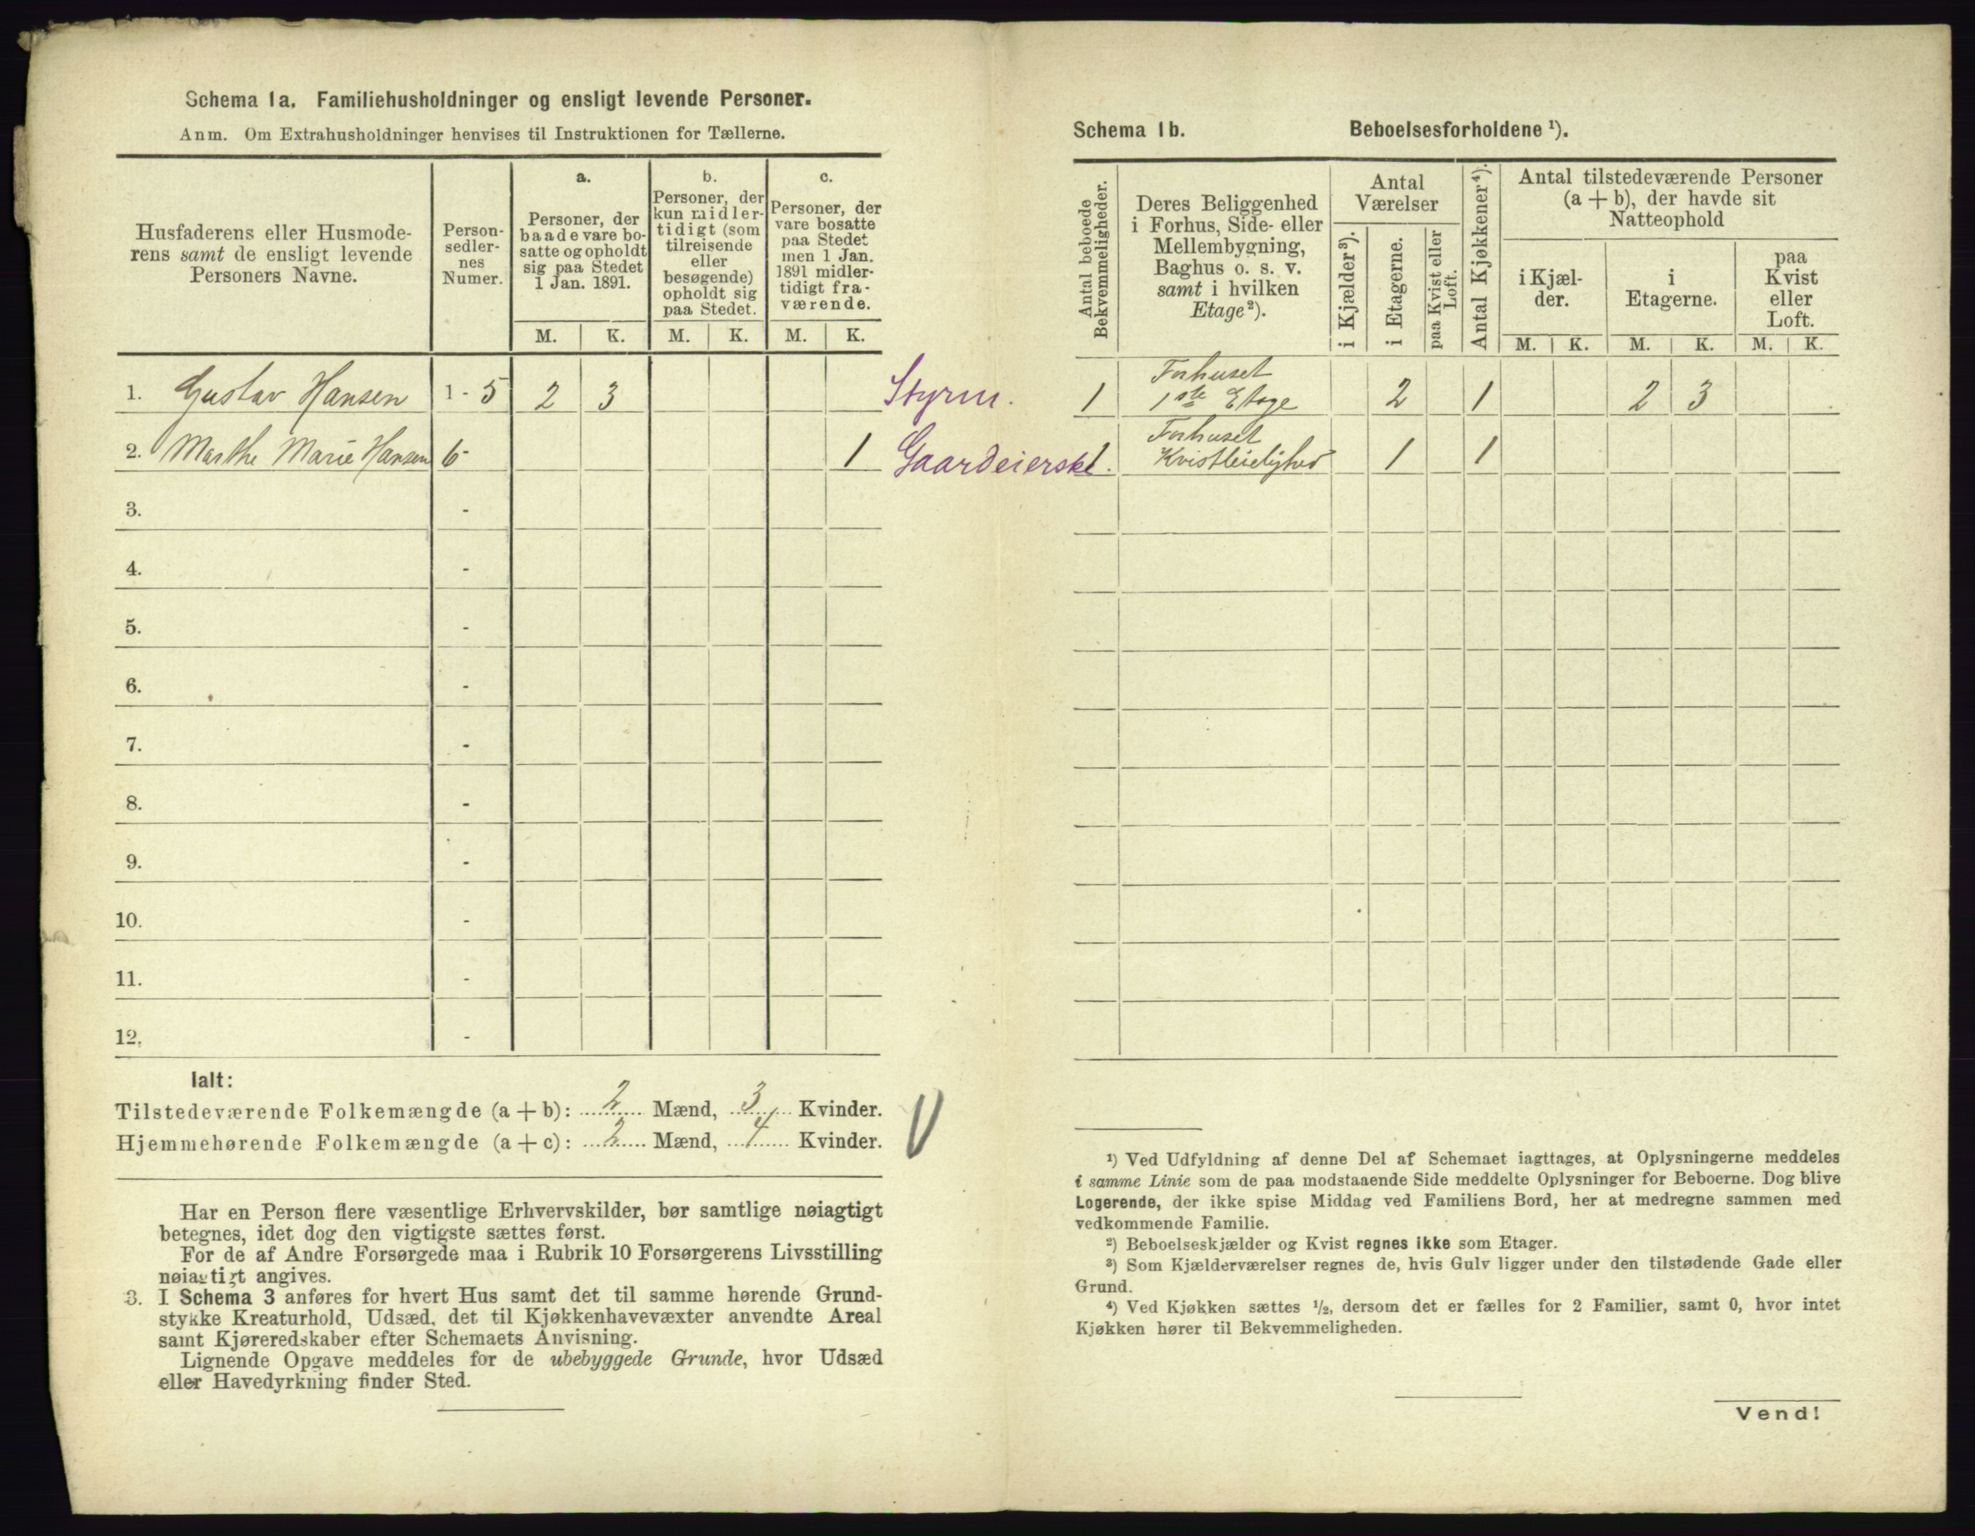 Schema 1a. Familiehusholdninger og ensligt levende Personer.
Anm. Om Extrahusholdninger henvises til Instruktionen for Tællerne.
Husfaderens eller Husmode-
rens samt de ensligt levende
Personers Navne.
Person-
sedler-
nes
Numer.
a.
Personer, der
baade vare bo-
satte og opholdt
sig paa Stedet
1 Jan. 1891.
b.
Personer, der
kun midler-
tidigt (som
tilreisende
eller
besøgende)
opholdt sig
paa Stedet.
c.
Personer, der
vare bosatte
paa Stedet
men 1 Jan.
1891 midler-
tidigt fra-
værende.
M. K. M. K. M. K.
1. Gustav Hansen 1 - 5 2 3 Styrm.
2. Marthe Marie Hansen 6 - 1 Gaardeierske
3. -
4. -
5. -
6. -
7. -
8. -
9. -
10. -
11. -
12. -
Ialt:
Tilstedeværende Folkemængde (a + b): 2 Mænd, 3 Kvinder.
Hjemmehørende Folkemængde (a + c): 2 Mænd, 4 Kvinder.
Har en Person flere væsentlige Erhvervskilder, bør samtlige nøiagtigt
betegnes, idet dog den vigtigste sættes først.
For de af Andre Forsørgede maa i Rubrik 10 Forsørgerens Livsstilling
nøiagtigt angives.
3. I Schema 3 anføres for hvert Hus samt det til samme hørende Grund-
stykke Kreaturhold, Udsæd, det til Kjøkkenhavevæxter anvendte Areal
samt Kjøreredskaber efter Schemaets Anvisning.
Lignende Opgave meddeles for de ubebyggede Grunde, hvor Udsæd
eller Havedyrkning finder Sted.
Schema 1b. Beboelsesforholdene ¹).
Antal beboede
Bekvemmeligheder.
Deres Beliggenhed
i Forhus, Side- eller
Mellembygning,
Baghus o. s. v.
samt i hvilken
Etage ²).
Antal
Værelser
i Kjælder ³).
i Etagerne.
paa Kvist eller
Loft.
Antal Kjøkkener ⁴).
Antal tilstedeværende Personer
(a + b), der havde sit
Natteophold
i Kjæl-
der.
i
Etagerne.
paa
Kvist
eller
Loft.
M. K. M. K. M. K.
Forhuset
1 1ste Etage 2 1 2 3
Forhuset
1. Kvistleilighed 1 1
¹) Ved Udfyldning af denne Del af Schemaet iagttages, at Oplysningerne meddeles
i samme Linie som de paa modstaaende Side meddelte Oplysninger for Beboerne. Dog blive
Logerende, der ikke spise Middag ved Familiens Bord, her at medregne sammen med
vedkommende Familie.
²) Beboelseskjælder og Kvist regnes ikke som Etager.
³) Som Kjælderværelser regnes de, hvis Gulv ligger under den tilstødende Gade eller
Grund.
⁴) Ved Kjøkken sættes ½, dersom det er fælles for 2 Familier, samt 0, hvor intet
Kjøkken hører til Bekvemmeligheden.
Vend!